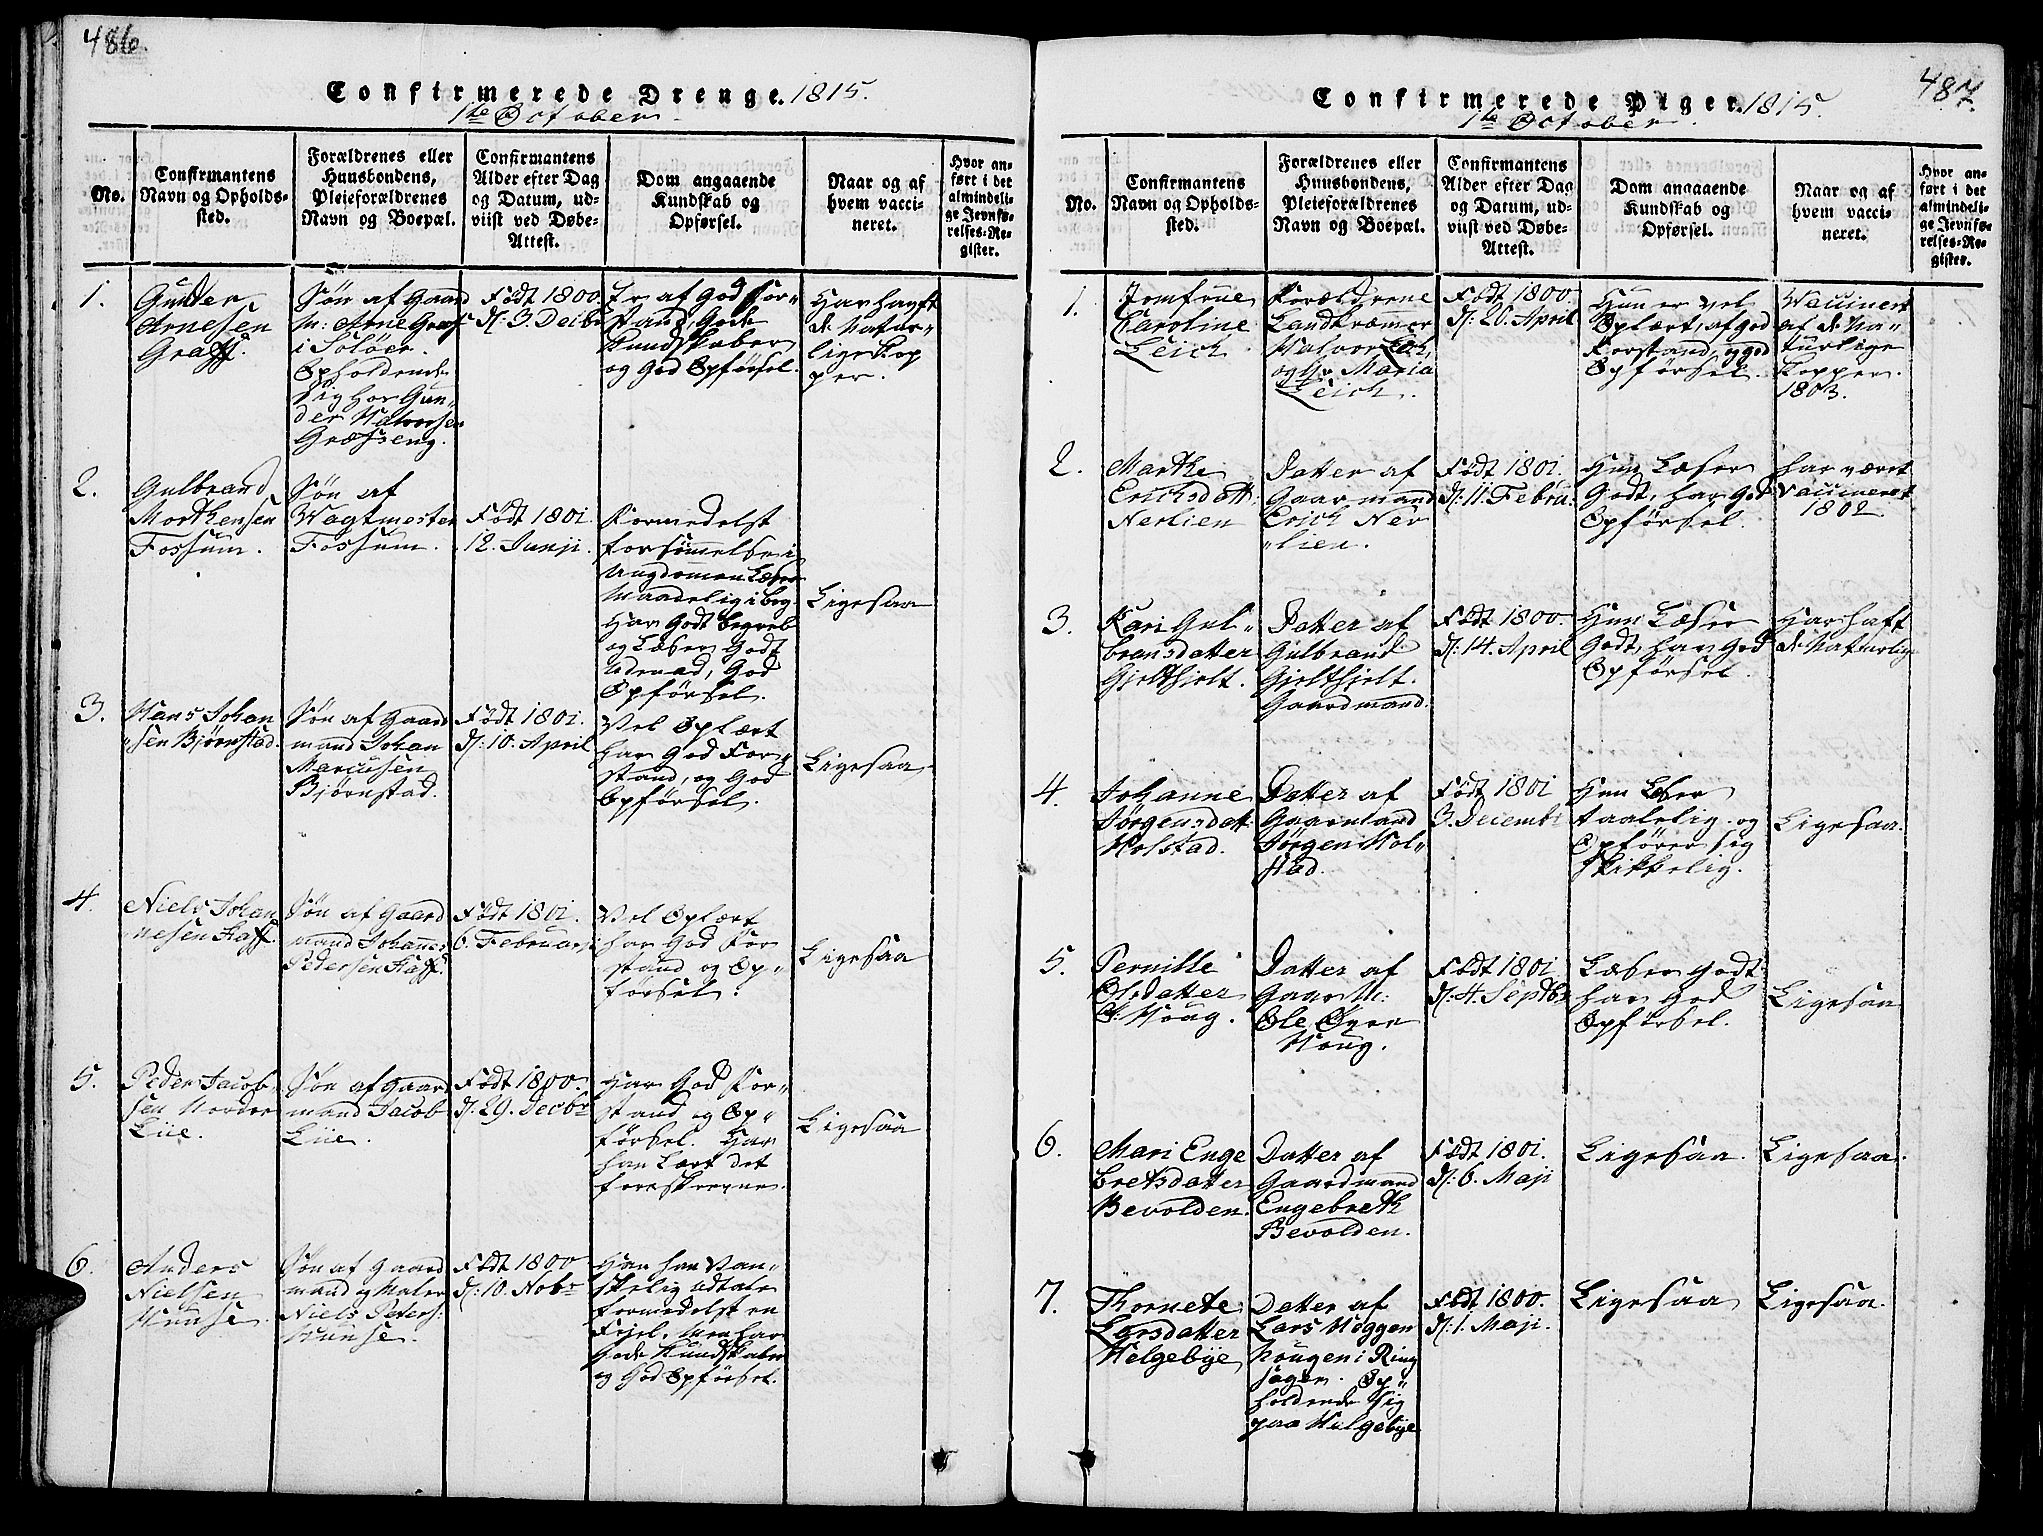 486.
Confirmerede Drenge. 1815.
1te October.
No.
Confirmantens
Navn og Opholds-
sted.
Forældrenes eller
Huusbondens,
Pleieforældrenes
Navn og Boepæl.
Confirmantens
Alder efter Dag
og Datum, ud-
viist ved Døbe-
Attest.
Dom angaaende
Kundskab og
Opførsel.
Naar og af
hvem vacci-
neret.
Hvor an-
ført i det
almindeli-
ge Jevnfø-
relses-Re-
gister.
1.
Gunder
Arnesen
Graff.
Søn af Gaard
M: Arne Graff
i Soløer.
Opholdende
sig hos Gun-
der Halvorsen
Græsseng.
Født 1800.
d: 3. Decbr
Er af God For-
stand, Gode
Kundskaber
og God Opførsel.
Har havft
de Natur-
lige Kop
per.
2.
Gulbrand
Morthensen
Fossum.
Søn af
Wagtmester
Fossum.
Født 1801.
12. Junji.
Formedelst
forsømmelse i
Ungdommen Læser
Maadelig i bog
Har Godt begreb
og Læser Godt
Udenad, God
Opførsel.
Ligesaa
3.
Hans Johan
"sen Bjørnstad.
Søn af Gaard
mand Johan
Marcusen
Bjørnstad.
Født 1801.
d: 10. April
Vel Oplært
har God For-
stand, og God
Opførsel.
Ligesaa
4.
Niels Johan
nesen Haff.
Søn af Gaard
mand Johannes
Pedersen Haff.
Født 1801.
6. Februarji
Vel Oplært
har God For
stand og Op-
førsel.
Ligesaa
5.
Peder Jacob
sen Nordre
Lüe.
Søn af Gaard
mand Jacob
Lüe.
Født 1800.
d: 29. Decbr
Har God For-
stand og Op-
førsel. Har
han Lært det
foreskrevne.
Ligesaa
6.
Anders
Nielsen
Huuse.
Søn af Gaard
mand og Maler
Niels Peters:
Huuse.
Født 1800
d: 10. Nobr
Han har Van-
skelig udtale
formedelst en
Fejl. Men har
Gode Kundskaber
og God Opførsel.
487.
Confirmerede Piger. 1815.
1te October.
No.
Confirmantens
Navn og Opholds-
sted.
Forældrenes eller
Huusbondens,
Pleieforældrenes
Navn og Boepæl.
Confirmantens
Alder efter Dag
og Datum, ud-
viist ved Døbe-
Attest.
Dom angaaende
Kundskab og
Opførsel.
Naar og af
hvem vacci-
neret.
Hvor an-
ført i det
almindeli-
ge Jevnfø-
relses-Re-
gister.
1.
Jomfrue
Caroline
Leich
Forældrene
Landkræmmer
Halvor Leich,
og Maria
Leich.
Født 1800.
d: 20. April
Hun er vel
Oplært, af god
Forstand, og god
Opførsel.
Vaccinert
af de Na-
turlige
Kopper.
1803.
2.
Marthe
Erichsdatt:
Nerlien
Datter af
Gaarmand
Erich Ner
"lien.
Født 1801.
d: 11. Febru:
Hun Læser
Godt, har God
Opførsel.
har været
Vaccineret
1802
3.
Kari Gul-
bransdatter
Gjelthjelt.
Datter af
Gulbrand
Gjelthjelt.
Gaardmand.
Født 1800.
d: 14. April
Hun Læser
Godt, har God
Opførsel.
Har haft
de Naturlig
4.
Johanne
Jørgensdatt:
Holstad.
Datter af
Gaarmand
Jørgen Hol-
stad.
Født 1801
3. Decembr
Hun Læser
taalelig. og
Opfører sig
skikkelig.
Ligesaa.
5.
Pernille
Olsdatter
Ø. Houg.
Datter af
Gaar M:
Ole Øvre
Houg.
Født 1801.
d: 4. Septbr
Læser Godt
har God
Opførsel.
Ligesaa
6.
Mari Enge
bretsdatter
Bevolden.
Datter af
Gaardmand
Engebreth
Bevolden.
Født 1801.
d: 6. Maji
Ligesaa.
Ligesaa.
7.
Thornete
Larsdatter
Helgebye
Datter af
Lars Heggen
hougen i Ring
sager. Op-
holdende sig
paa Helgebye
Født 1800.
d: 1. Maji.
Ligesaa
Ligesaa.